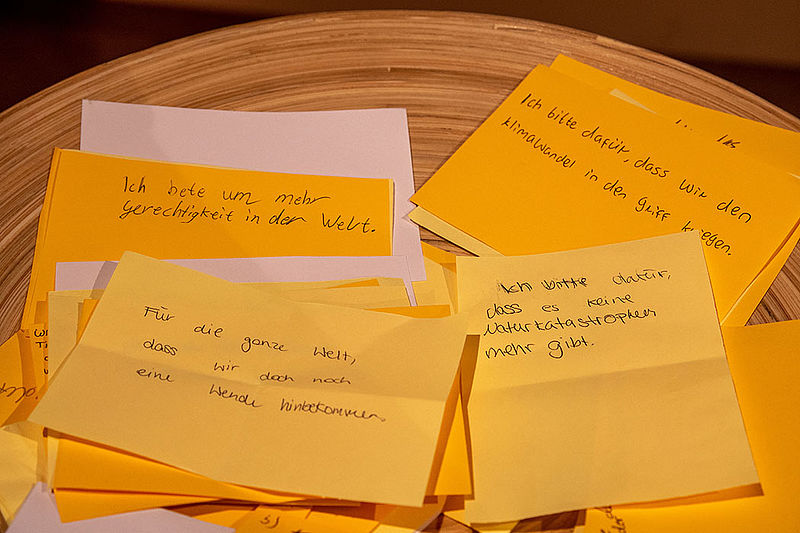 Ich bete um mehr
gerechtigkeit in der Welt.
Ich bitte dafür, dass wir den
Klimawandel in den griff kriegen.
Für die ganze Welt,
dass wir doch noch
eine Wende hinbekommen.
Ich bitte dafür,
dass es keine
Naturkatastrophen
mehr gibt.